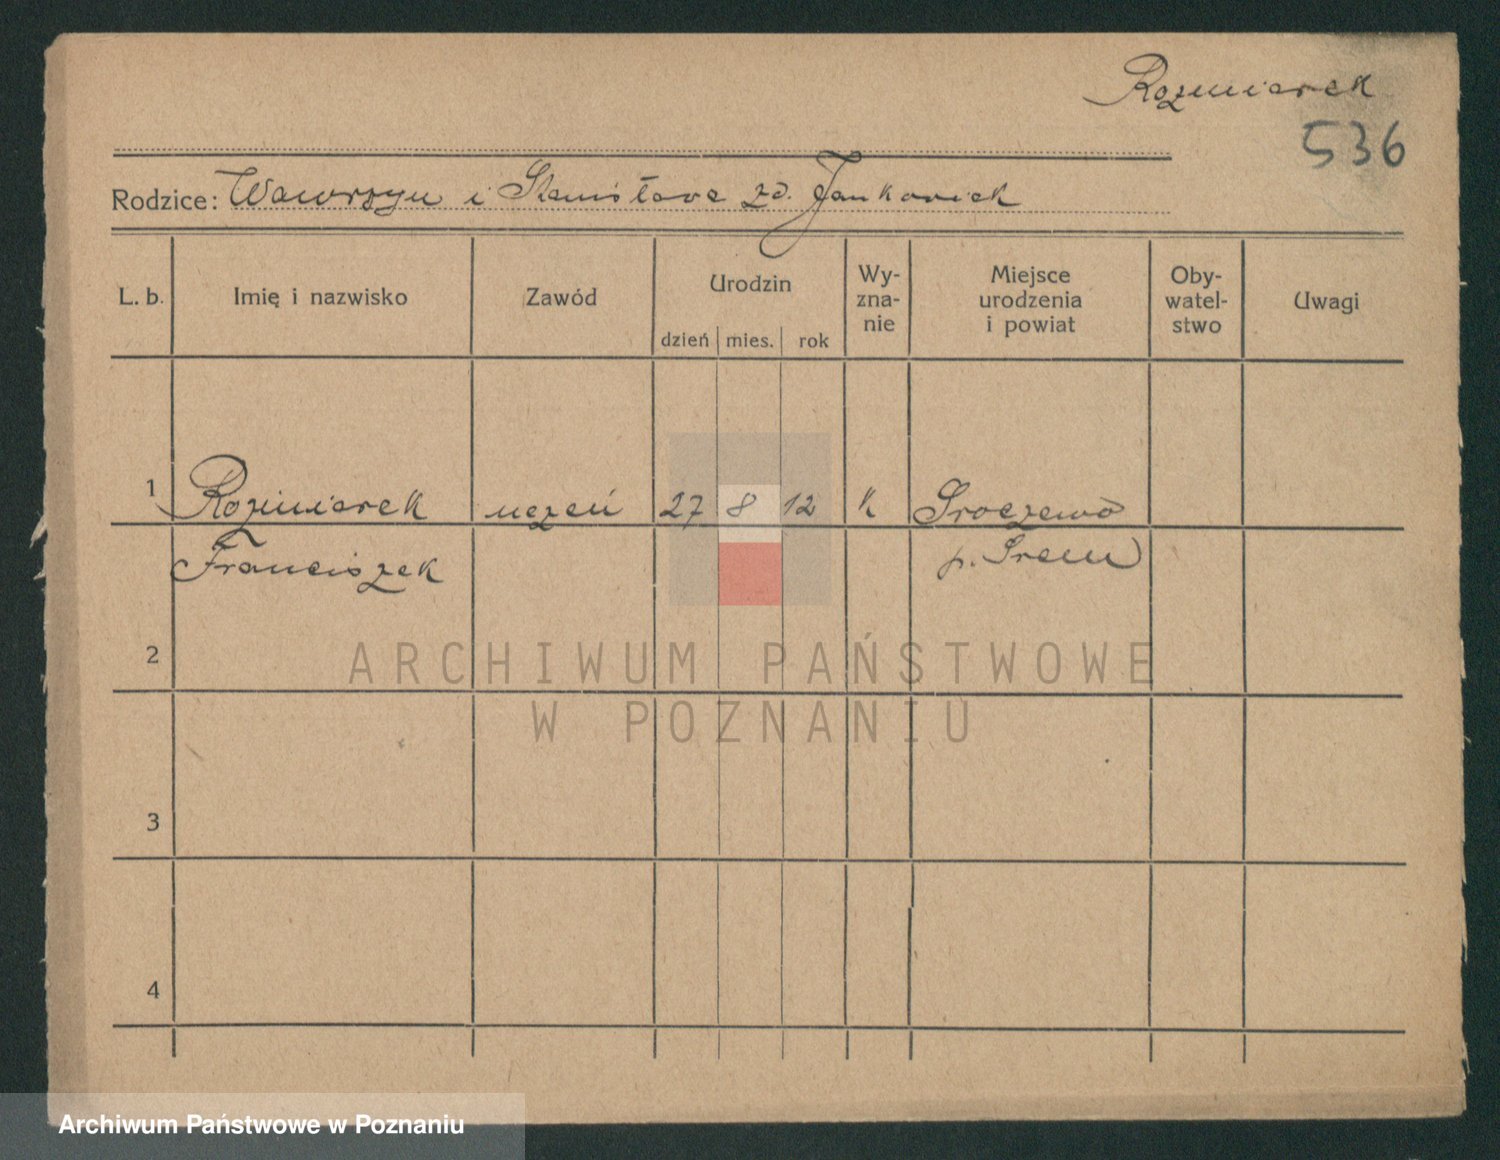 Rozmiarek
536
Rodzice: Wawrzyn i Stanisława zd. Jankowiak
L. b.
Imię i nazwisko
Zawód
Urodzin
dzień mies. rok
Wy-
zna-
nie
Miejsce
urodzenia
i powiat
Oby-
watel-
stwo
Uwagi
1 Rozmiarek uczeń 27 8 12 k Sroczewo
Franciszek p. Śrem
2
3
4
ARCHIWUM PAŃSTWOWE
W POZNANIU
Archiwum Państwowe w Poznaniu